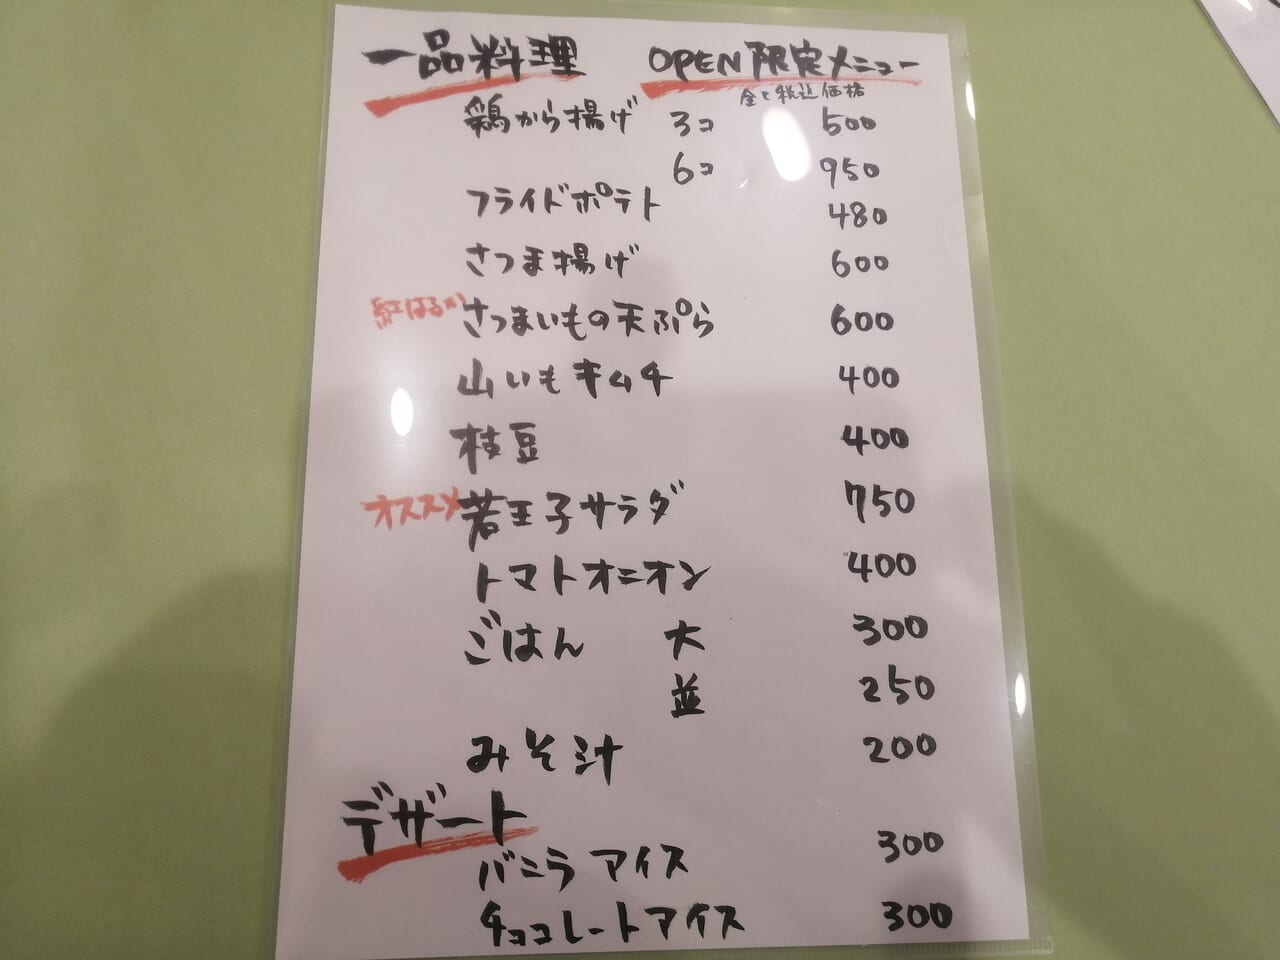 一品料理 OPEN限定メニュー
全て税込価格
鶏から揚げ 3コ 500
6コ 950
フライドポテト 480
さつま揚げ 600
紅はるか さつまいもの天ぷら 600
山いもキムチ 400
枝豆 400
オススメ 若王子サラダ 750
トマトオニオン 400
ごはん 大 300
並 250
みそ汁 200
デザート
バニラアイス 300
チョコレートアイス 300